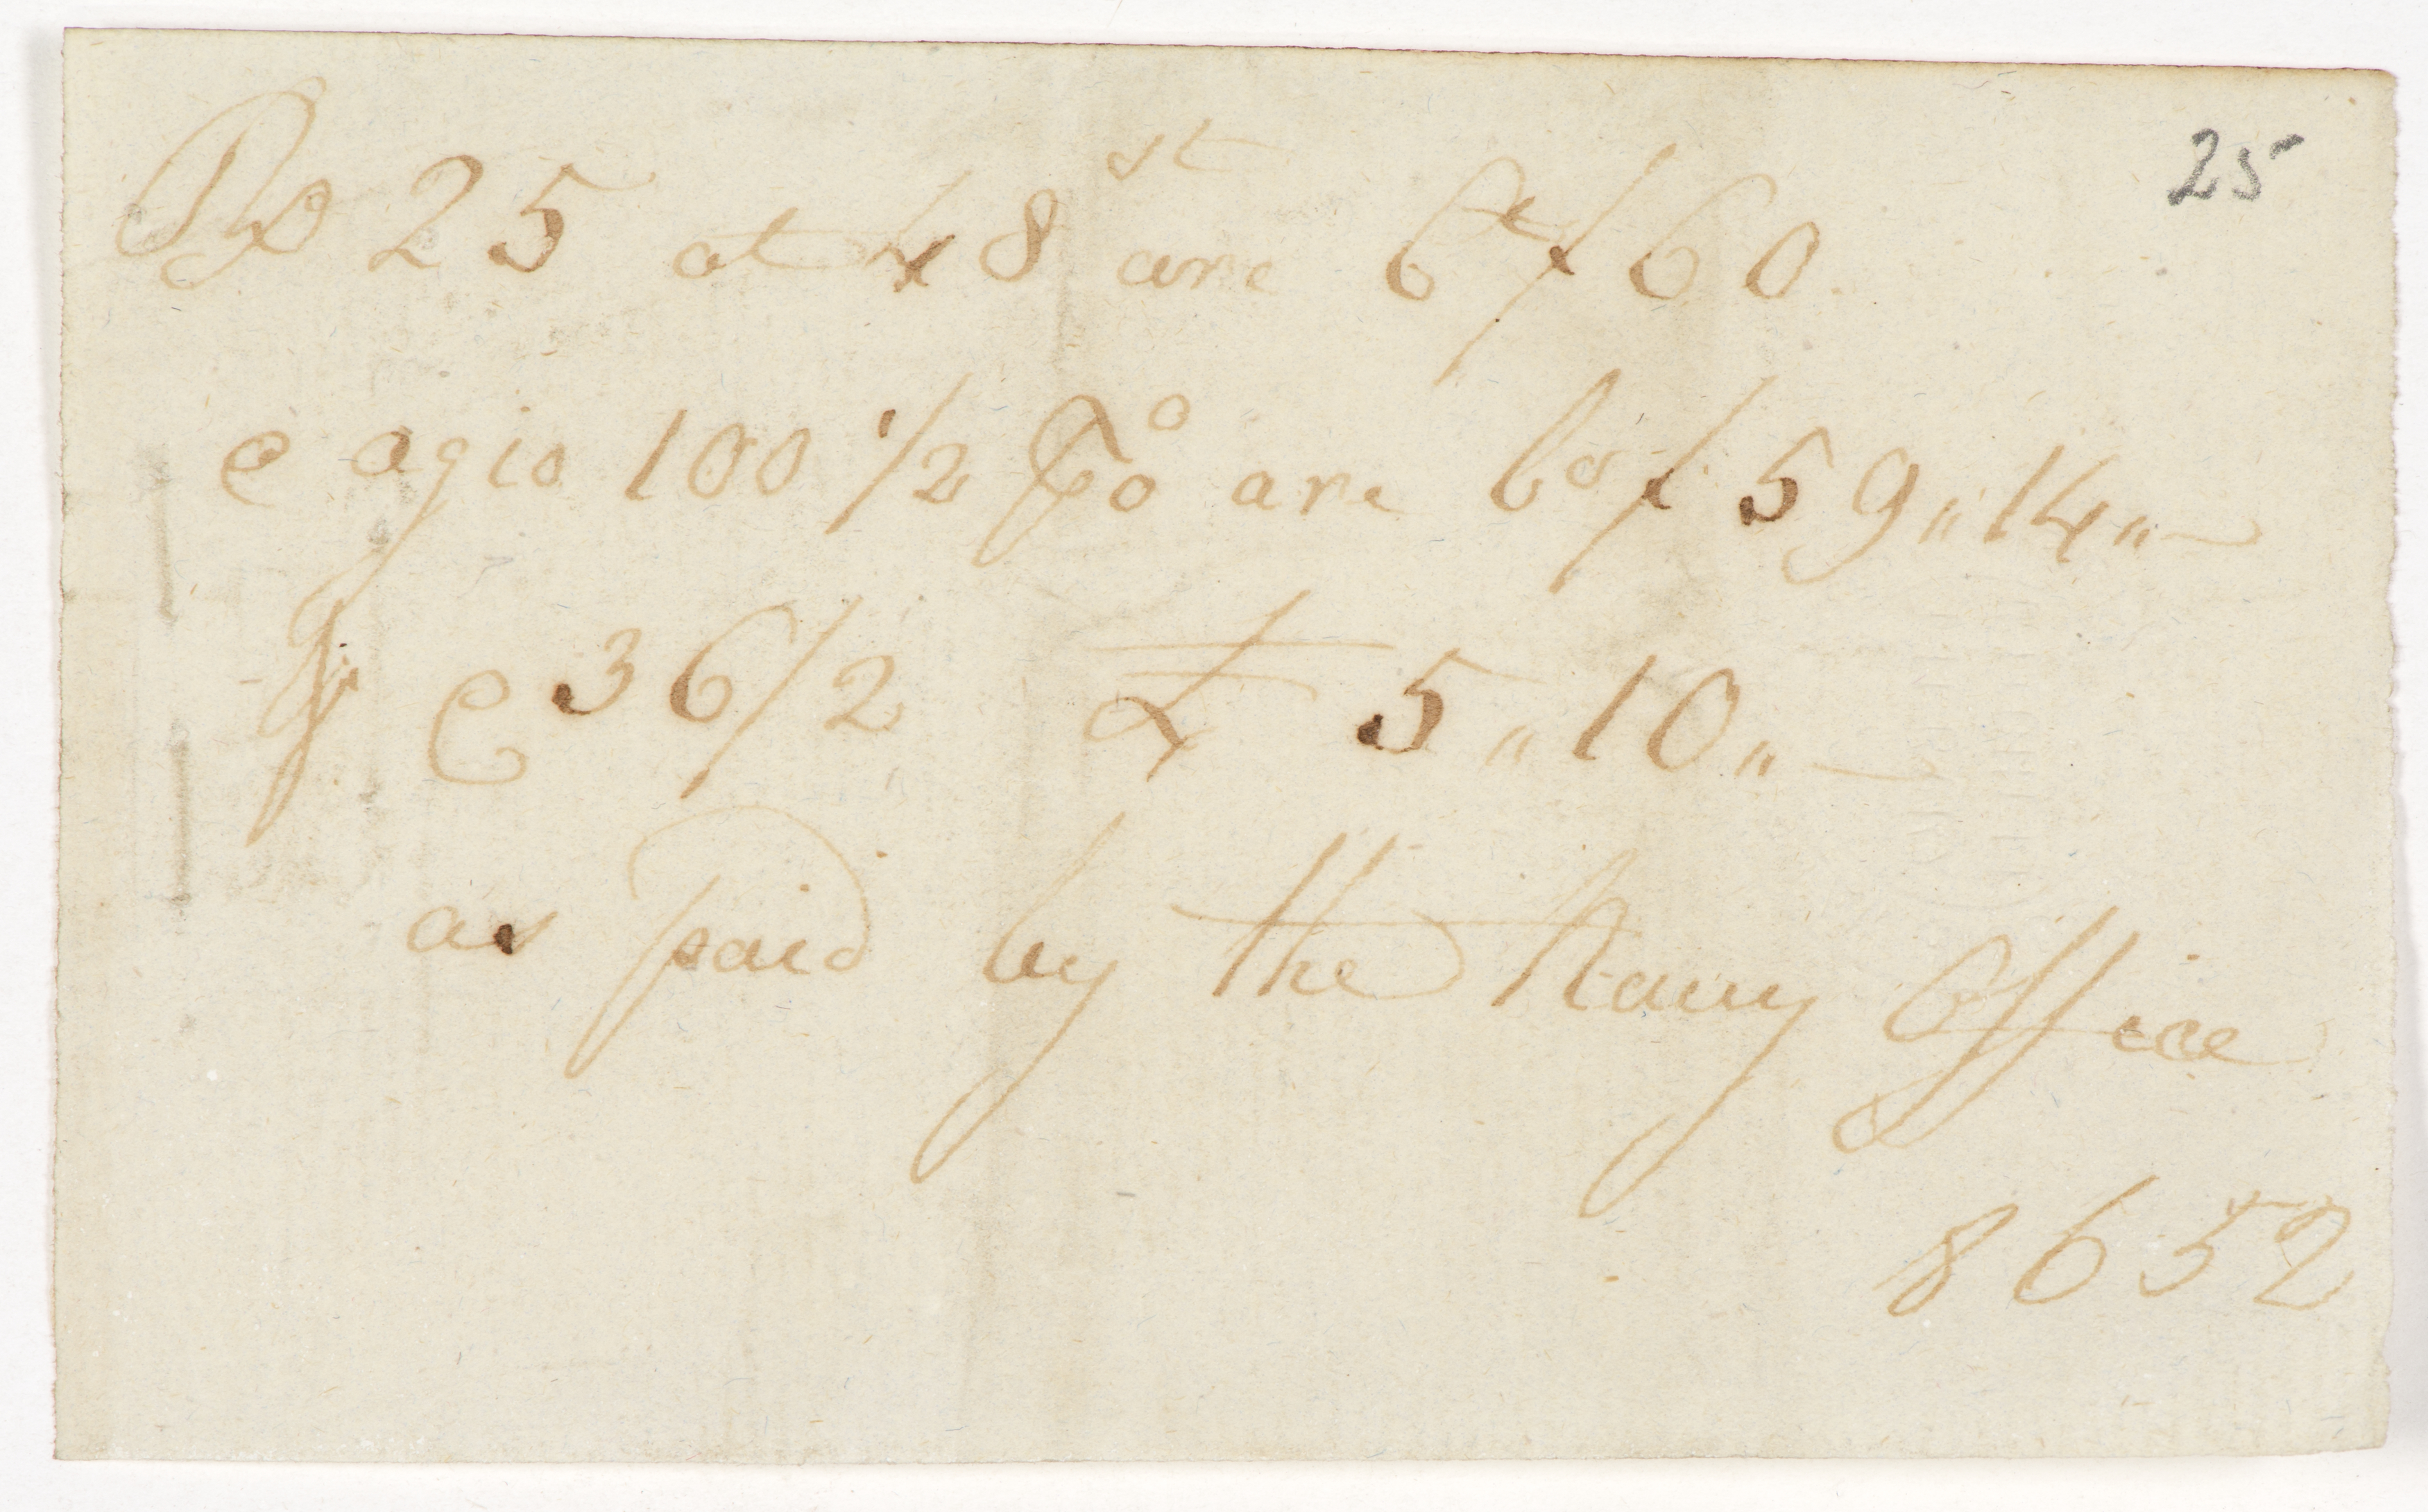 25
Rx 25 at 48 st are Ct f 60.
@ agio 100 1/2 P%o are bo f 59 " 14 " —
@ 36/2 £ 5 " 10 " —
as paid by the Navy Office
8652